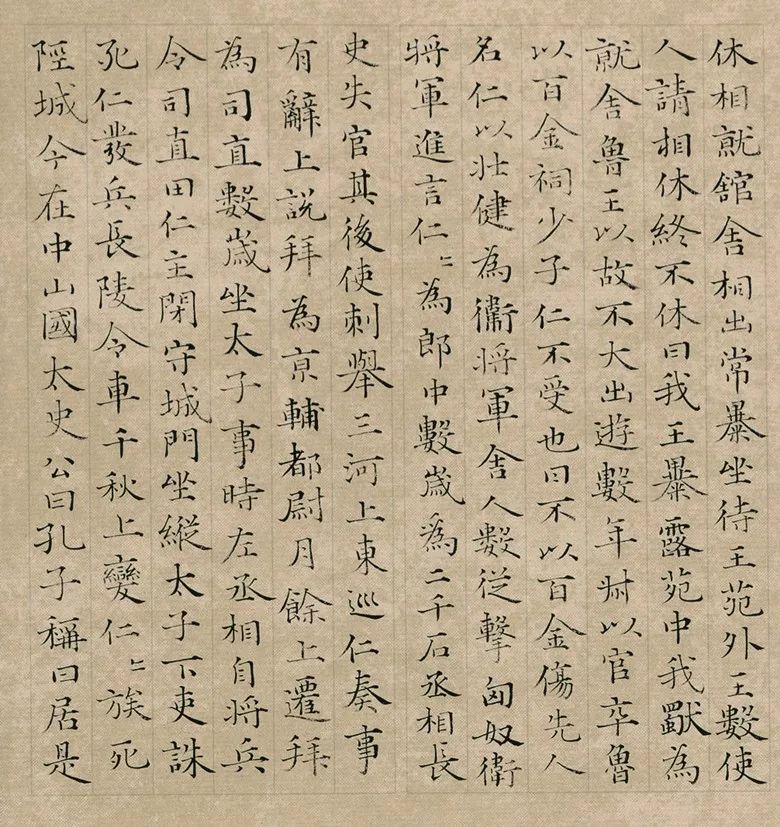 休相就舘舍相出常暴坐待王苑外王數使
人請相休終不休曰我王暴露苑中我獨為
就舍魯王以故不大出遊數年叔以官卒魯
以百金祠少子仁不受也曰不以百金傷先人
名仁以壯健為衛將軍舍人數從擊匈奴衛
將軍進言仁〻為郎中數歲為二千石丞相長
史失官其後使刺舉三河上東巡仁奏事
有辭上說拜為京輔都尉月餘上遷拜
為司直數歲坐太子事時左丞相自將兵
令司直田仁主閉守城門坐縱太子下吏誅
死仁發兵長陵令車千秋上變仁〻族死
陘城今在中山國太史公曰孔子稱曰居是